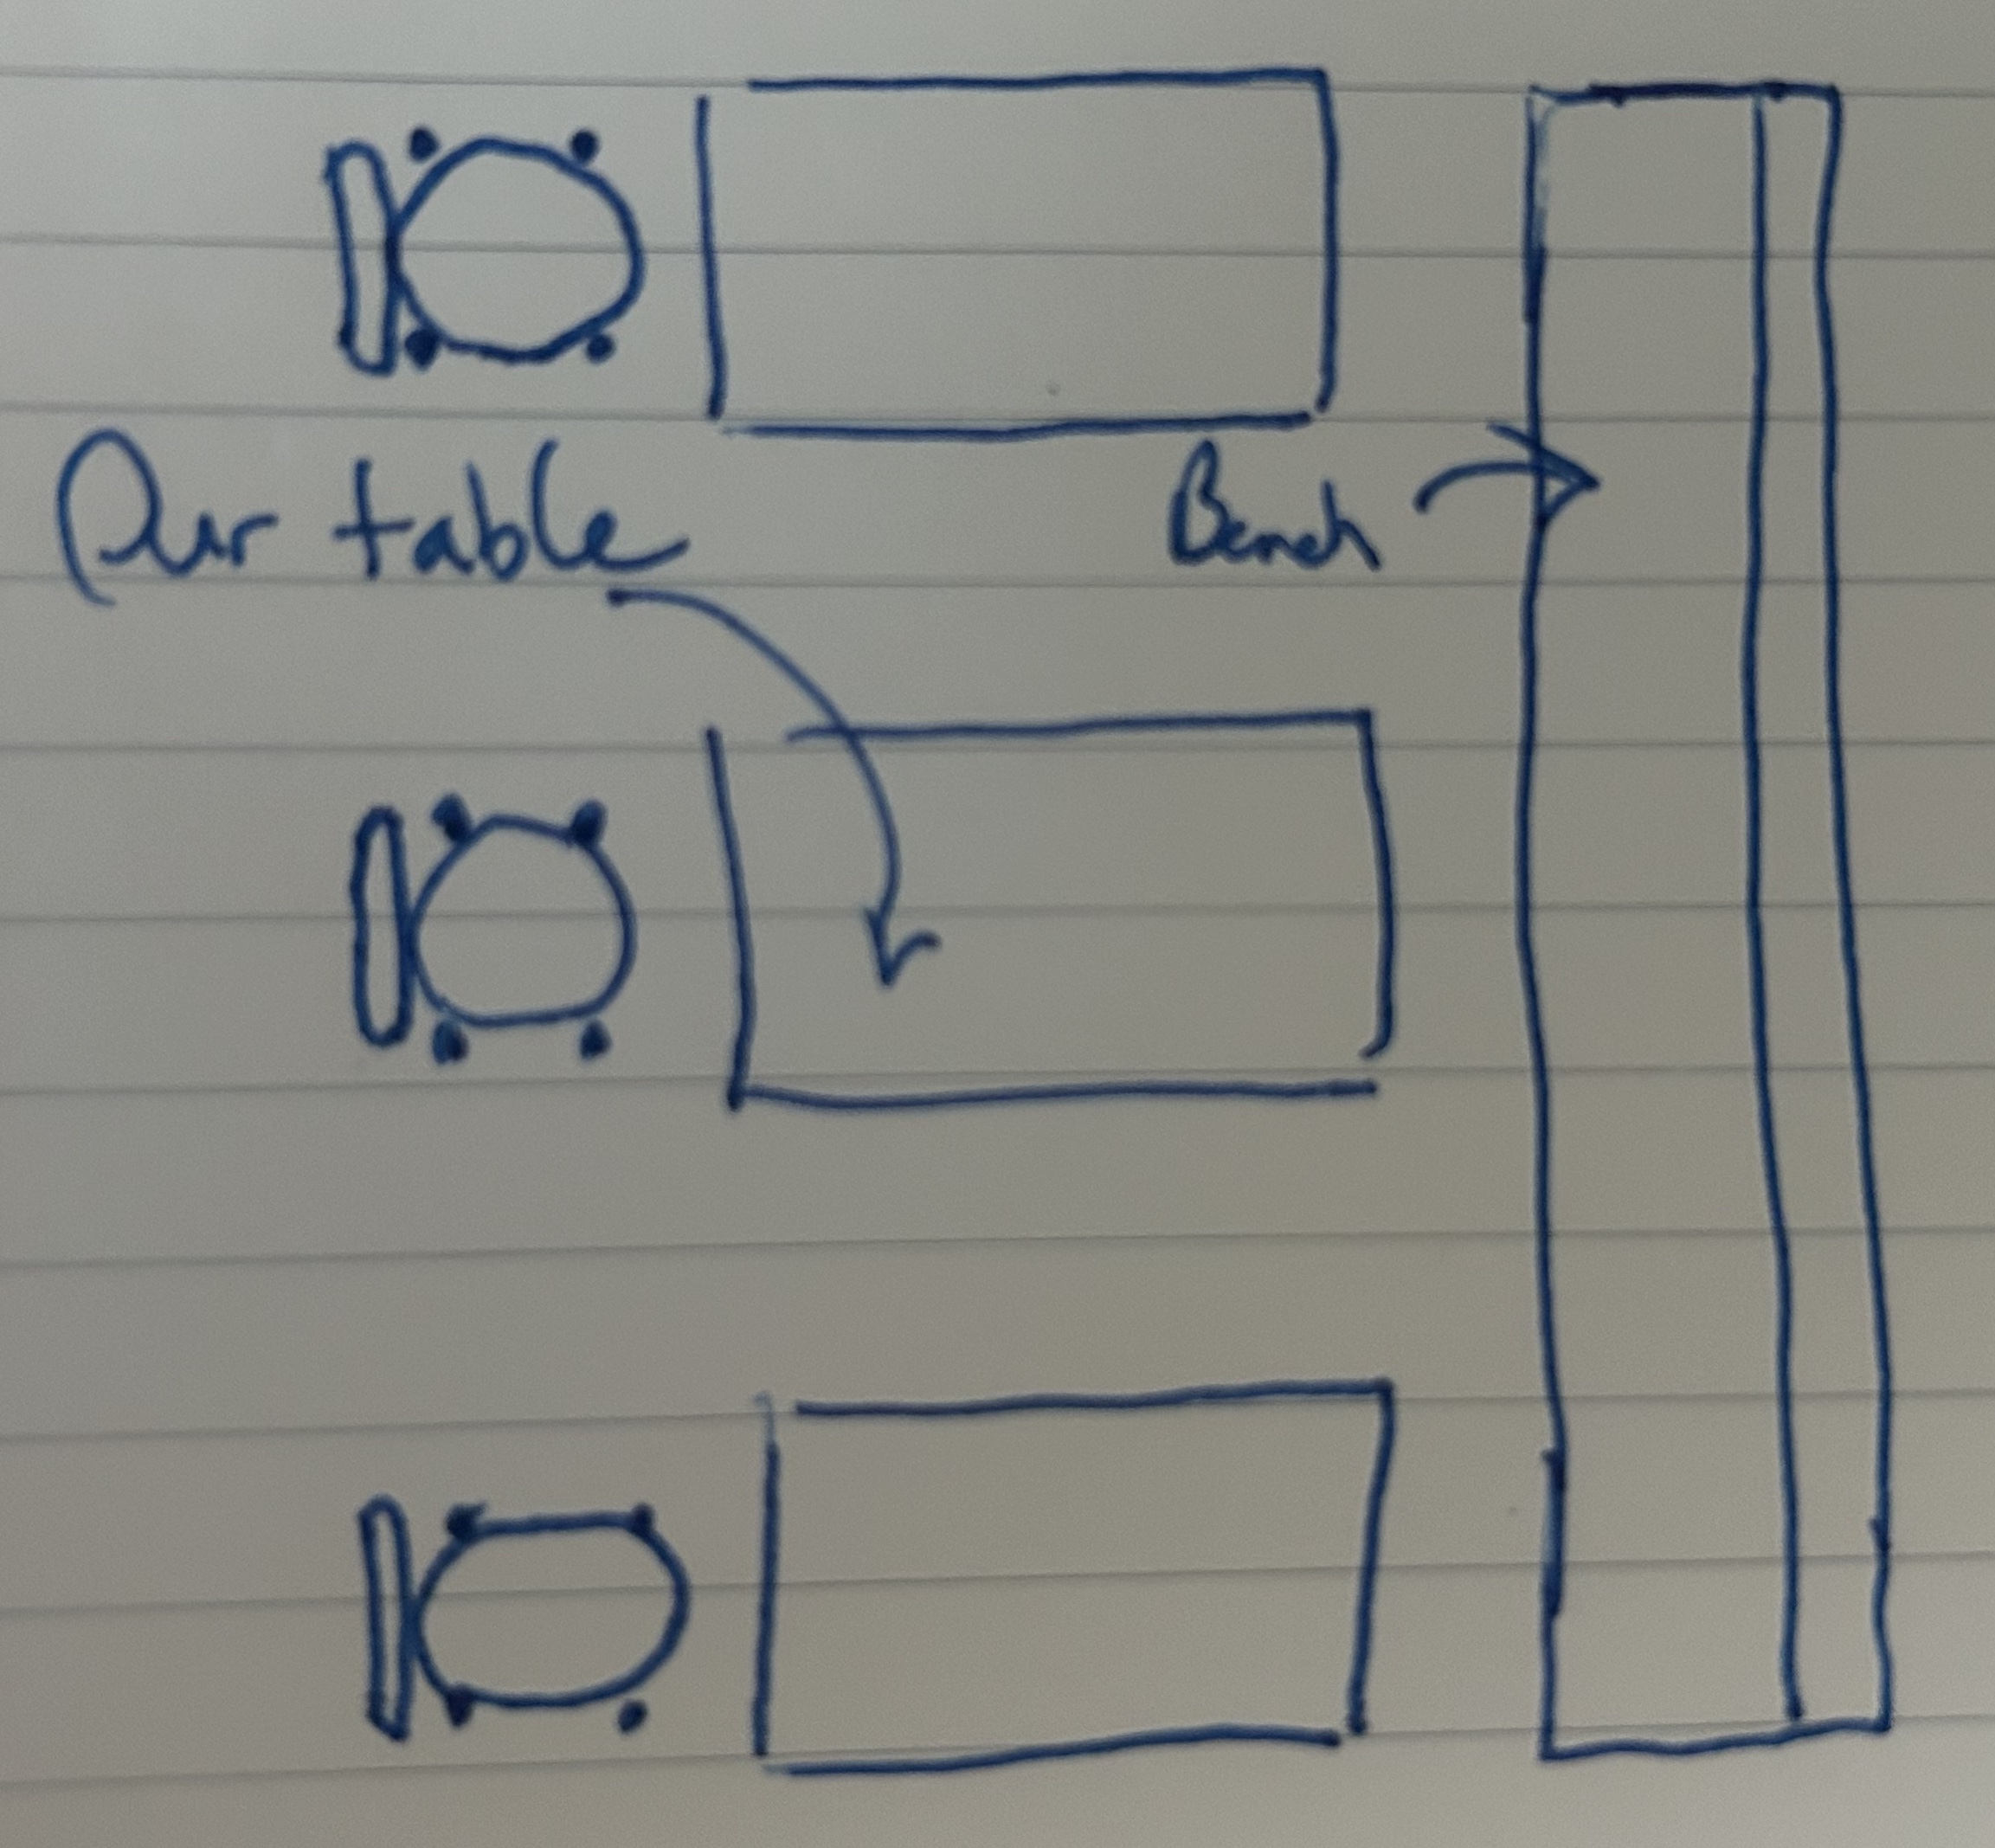 Our table
Bench